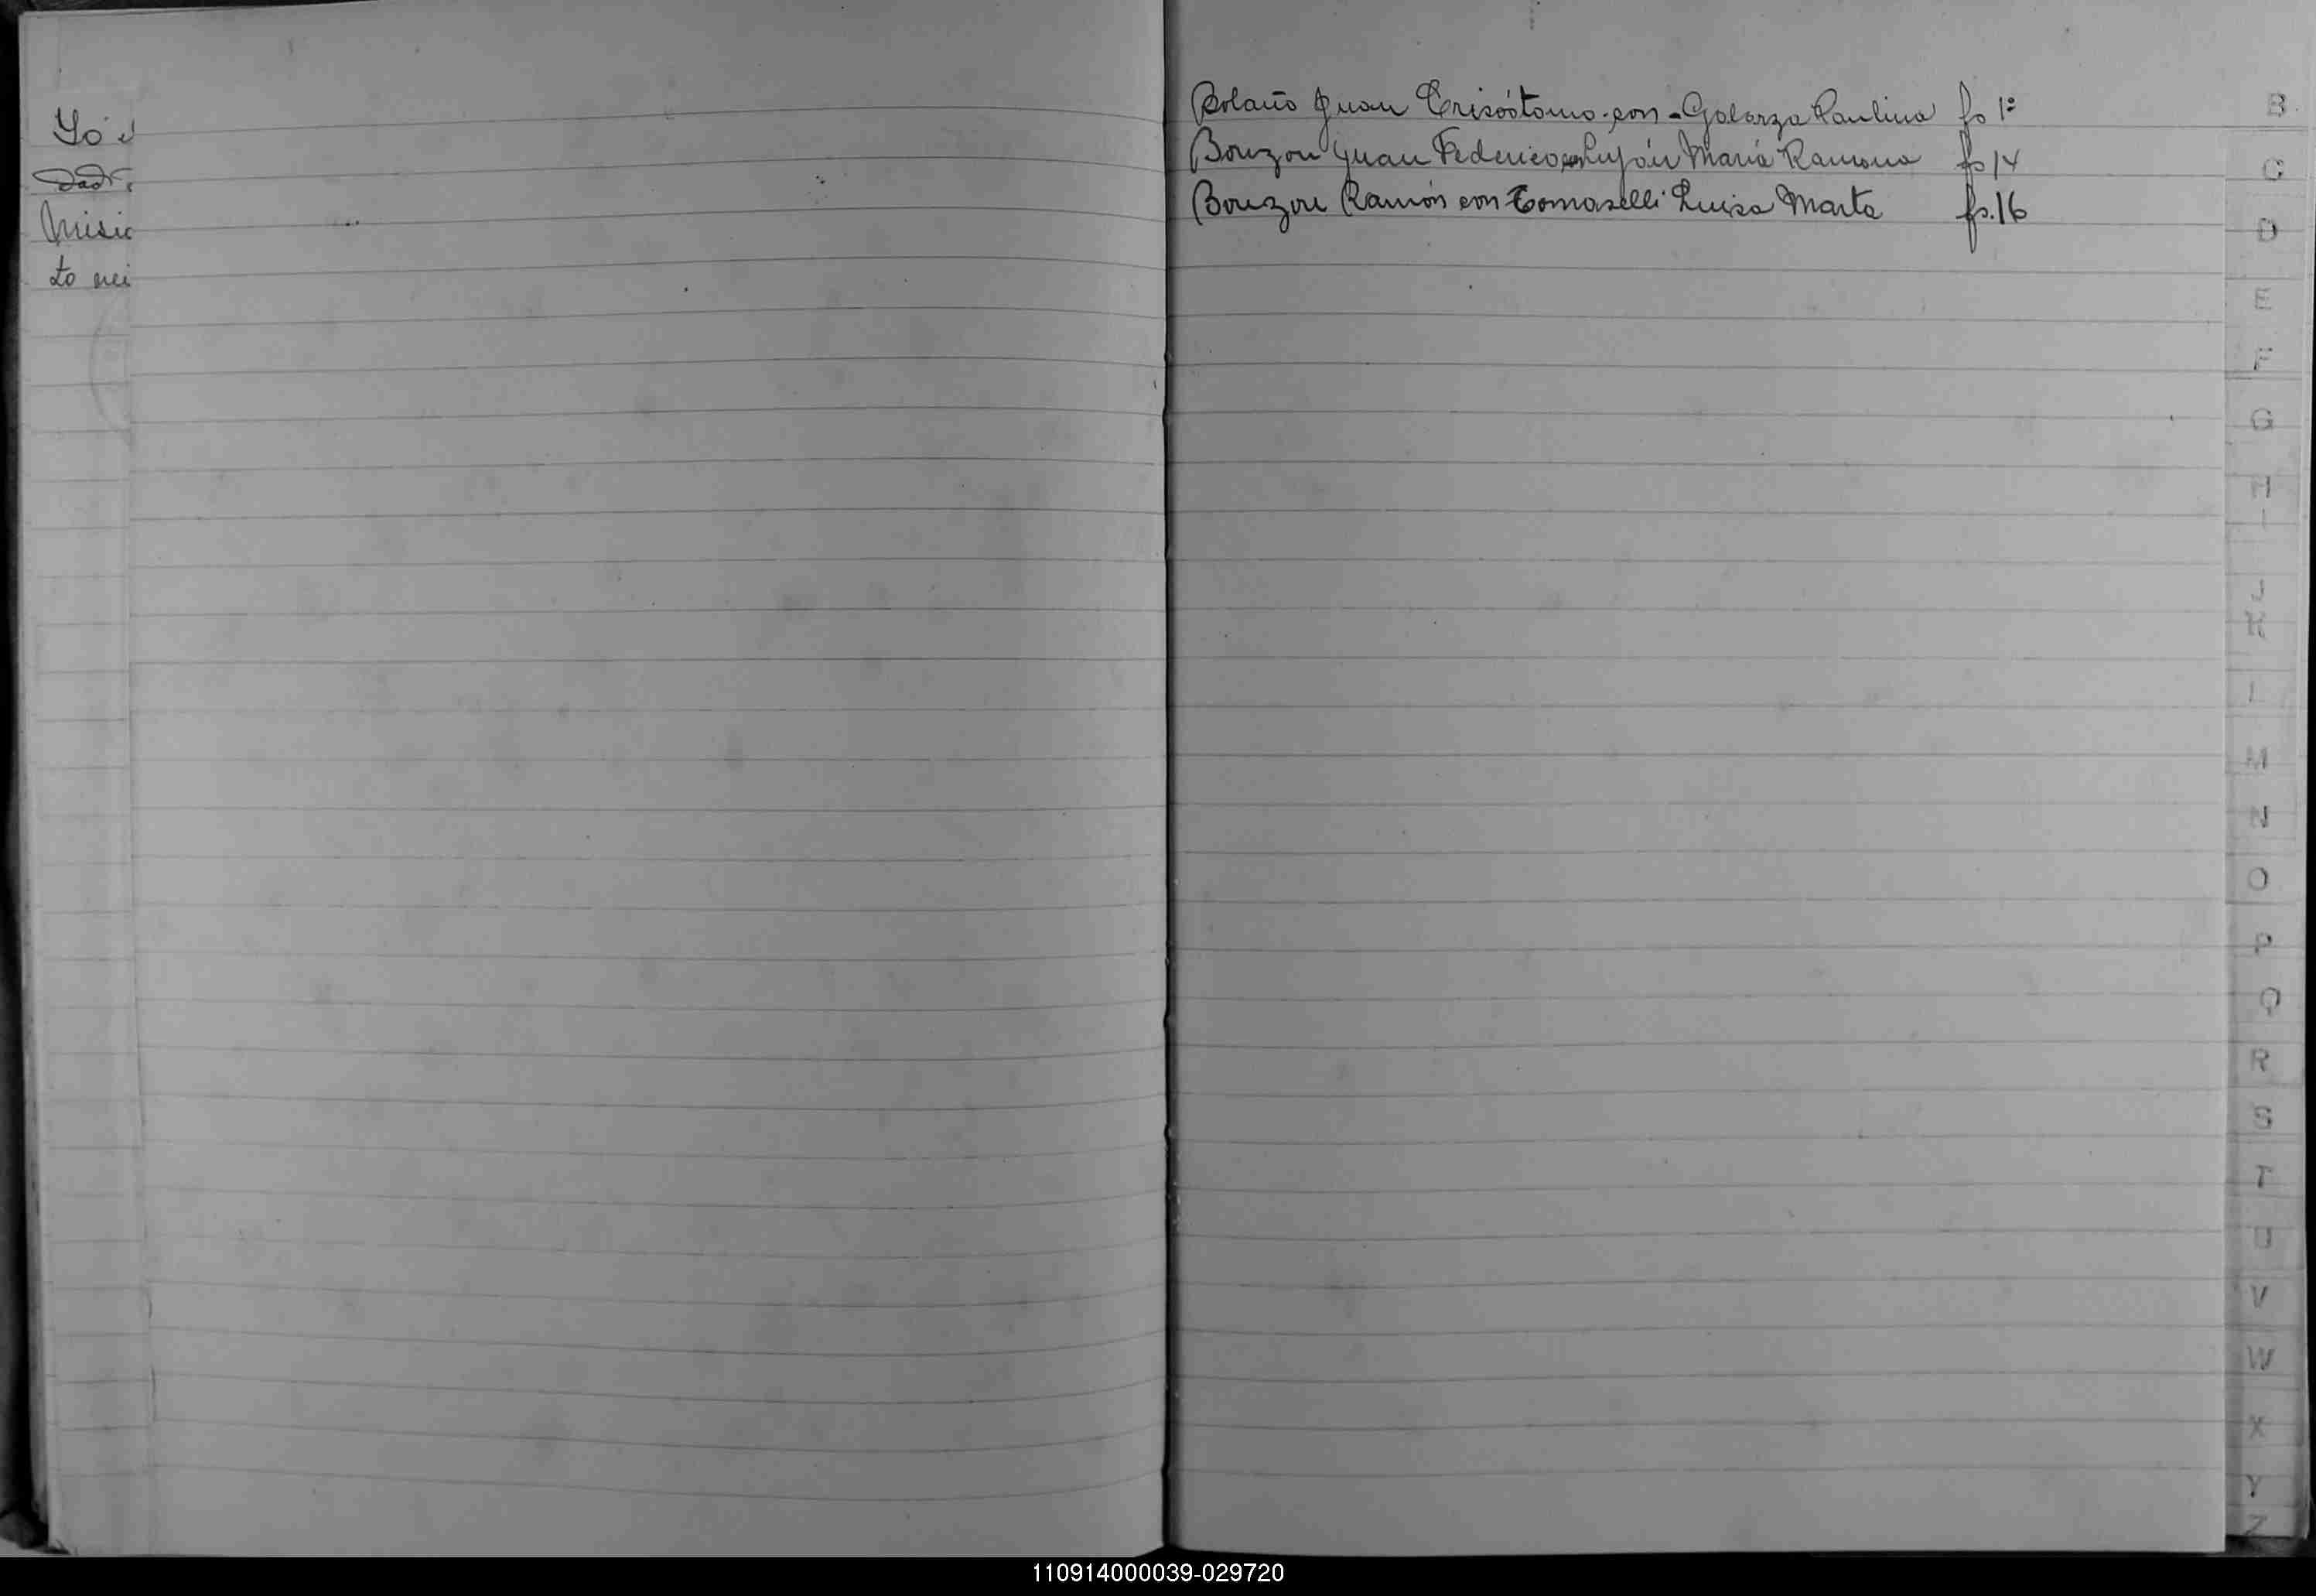 Yo e
dad
misio
to nei
Bolaño Juan Crisóstomo con Galarza Paulina fo 1º
Bouzon Juan Federico con Luján María Ramona fo 14
Bouzon Ramón con Tomaselli Luisa Marta fs. 16
B
C
D
E
F
G
H
I
J
K
L
M
N
O
P
Q
R
S
T
U
V
W
X
Y
Z
110914000039-029720